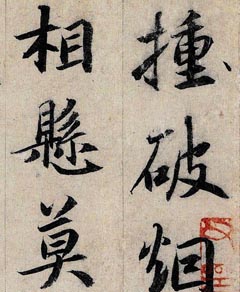 揰破烟
相懸莫